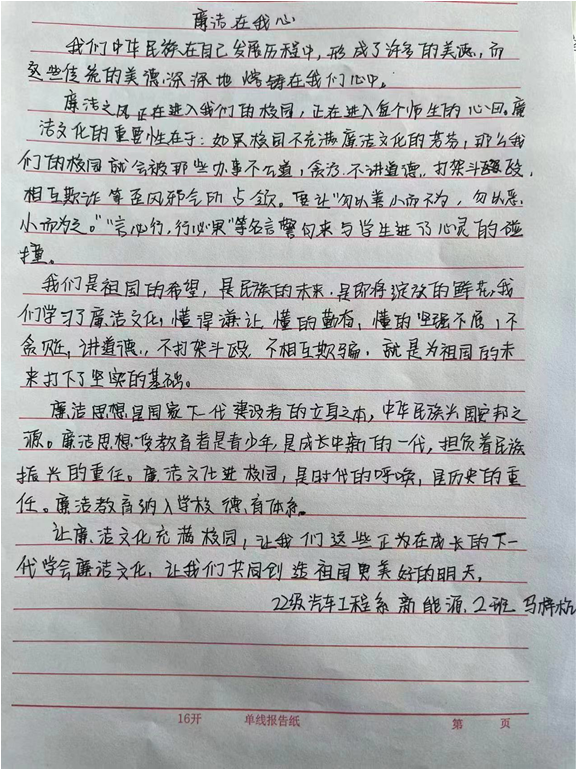 廉洁在我心
我们中华民族在自己发展历程中，形成了许多的美德，而
这些传统的美德深深地熔铸在我们心中。
廉洁之风正在进入我们的校园，正在进入每个师生的心田。廉
洁文化的重要性在于：如果校园不充满廉洁文化的芳芬，那么我
们的校园就会被那些办事不公道，贪污，不讲道德，打架斗殴，
相互欺诈等歪风邪气所占领。要让"勿以善小而不为，勿以恶
小而为之。""言必行，行必果"等名言警句来与学生进行心灵的碰
撞。
我们是祖国的希望，是民族的未来，是即将绽放的鲜花，我
们学习了廉洁文化，懂得谦让，懂的勤奋，懂的坚强不屈，不
贪贬，讲道德，不打架斗殴，不相互欺骗，就是为祖国的未
来打下了坚实的基础。
廉洁思想是国家下一代建设者的立身之本，中华民族兴国安邦之
源。廉洁思想受教育者是青少年，是成长中新的一代，担负着民族
振兴的重任。廉洁文化进校园，是时代的呼唤，是历史的重
任。廉洁教育纳入学校德育体系。
让廉洁文化充满校园，让我们这些正为在成长的下一
代学会廉洁文化，让我们共同创造祖国更美好的明天。
22级汽车工程系新能源2班 马
16开 单线报告纸 第 页